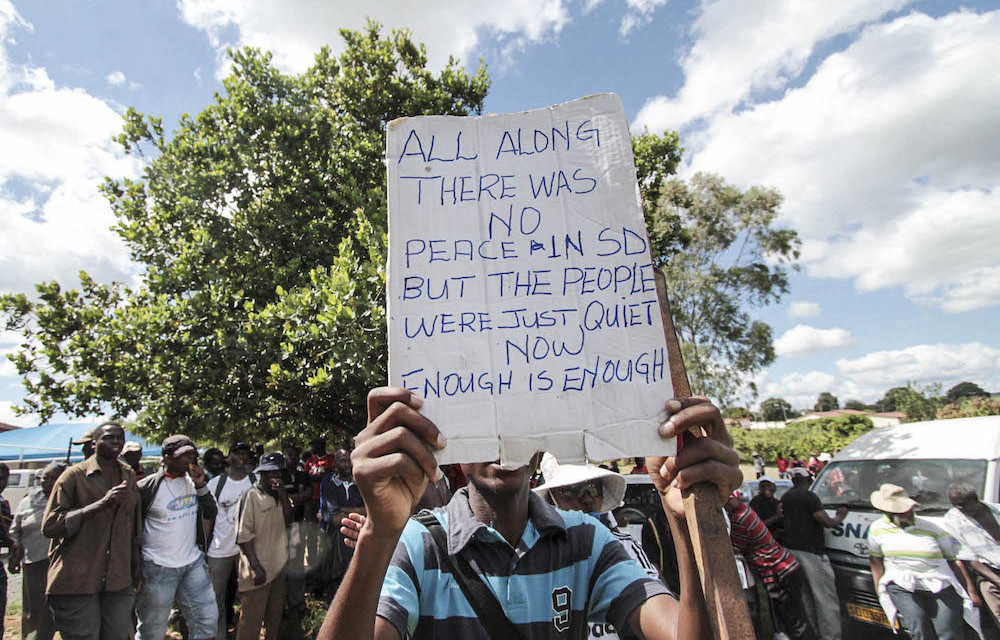 ALL ALONG
THERE WAS
NO
PEACE IN SD
BUT THE PEOPLE
WERE JUST QUIET
NOW
ENOUGH IS ENOUGH
9
SNA